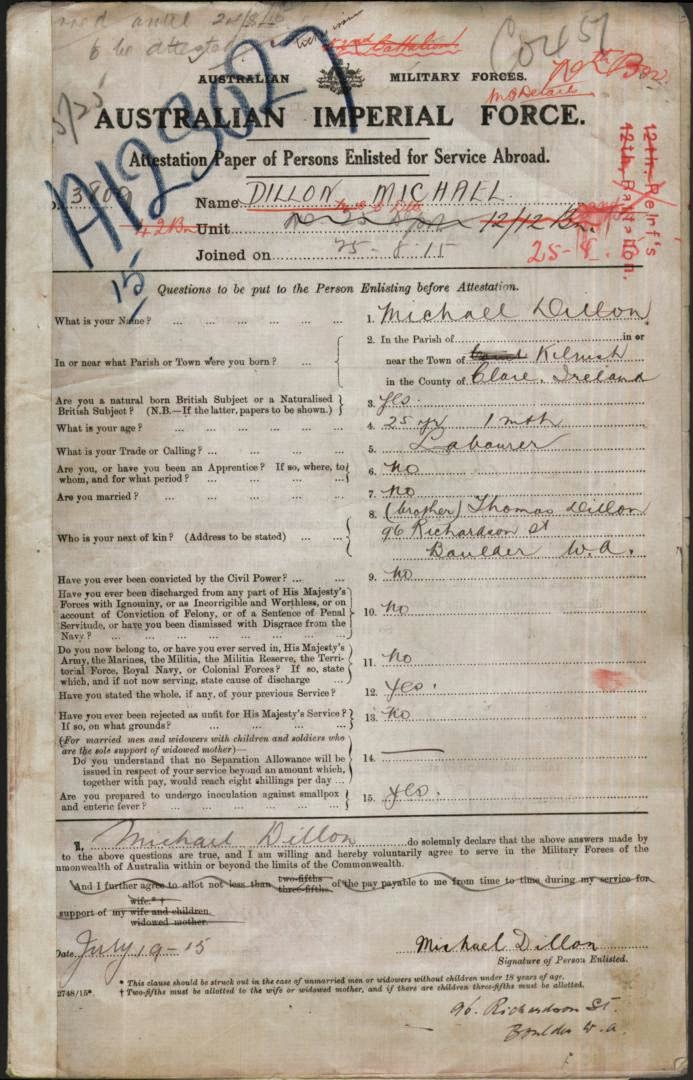 to be attested
42nd Battalion
Cor 51
AUSTRALIAN MILITARY FORCES.
A12302
AUSTRALIAN IMPERIAL FORCE.
Attestation Paper of Persons Enlisted for Service Abroad.
3809 Name DILLON MICHAEL
Unit 12/12 Bn.
Joined on 25-8-15
12th. Reinf's
12th. Battalion.
15
Questions to be put to the Person Enlisting before Attestation.
What is your Name? ... 1. Michael Dillon
2. In the Parish of in or
In or near what Parish or Town were you born? ... near the Town of Kilrush
in the County of Clare, Ireland
Are you a natural born British Subject or a Naturalised
British Subject? (N.B.—If the latter, papers to be shown.) 3. Yes.
What is your age? ... 4. 25 yr 1 mth
What is your Trade or Calling? ... 5. Labourer
Are you, or have you been an Apprentice? If so, where, to
whom, and for what period? ... 6. No
Are you married? ... 7. No
8. (brother) Thomas Dillon
Who is your next of kin? (Address to be stated) ... 96 Richardson St
Boulder W.A.
Have you ever been convicted by the Civil Power? ... 9. No
Have you ever been discharged from any part of His Majesty's
Forces with Ignominy, or as Incorrigible and Worthless, or on
account of Conviction of Felony, or of a Sentence of Penal
Servitude, or have you been dismissed with Disgrace from the
Navy? ... 10. No
Do you now belong to, or have you ever served in, His Majesty's
Army, the Marines, the Militia, the Militia Reserve, the Terri-
torial Force, Royal Navy, or Colonial Forces? If so, state
which, and if not now serving, state cause of discharge 11. No
Have you stated the whole, if any, of your previous Service? 12. Yes.
Have you ever been rejected as unfit for His Majesty's Service?
If so, on what grounds? ... 13. No
(For married men and widowers with children and soldiers who
are the sole support of widowed mother)—
Do you understand that no Separation Allowance will be
issued in respect of your service beyond an amount which,
together with pay, would reach eight shillings per day ... 14. —
Are you prepared to undergo inoculation against smallpox
and enteric fever? ... 15. Yes.
I, Michael Dillon do solemnly declare that the above answers made by
to the above questions are true, and I am willing and hereby voluntarily agree to serve in the Military Forces of the
mmonwealth of Australia within or beyond the limits of the Commonwealth.
And I further agree to allot not less than two-fifths three-fifths of the pay payable to me from time to time during my service for
wife.*†
support of my wife and children.
widowed mother.
Date July 19-15 Michael Dillon
Signature of Person Enlisted.
* This clause should be struck out in the case of unmarried men or widowers without children under 18 years of age.
2748/15*. † Two-fifths must be allotted to the wife or widowed mother, and if there are children three-fifths must be allotted.
96. Richardson St.
Boulder W.A.